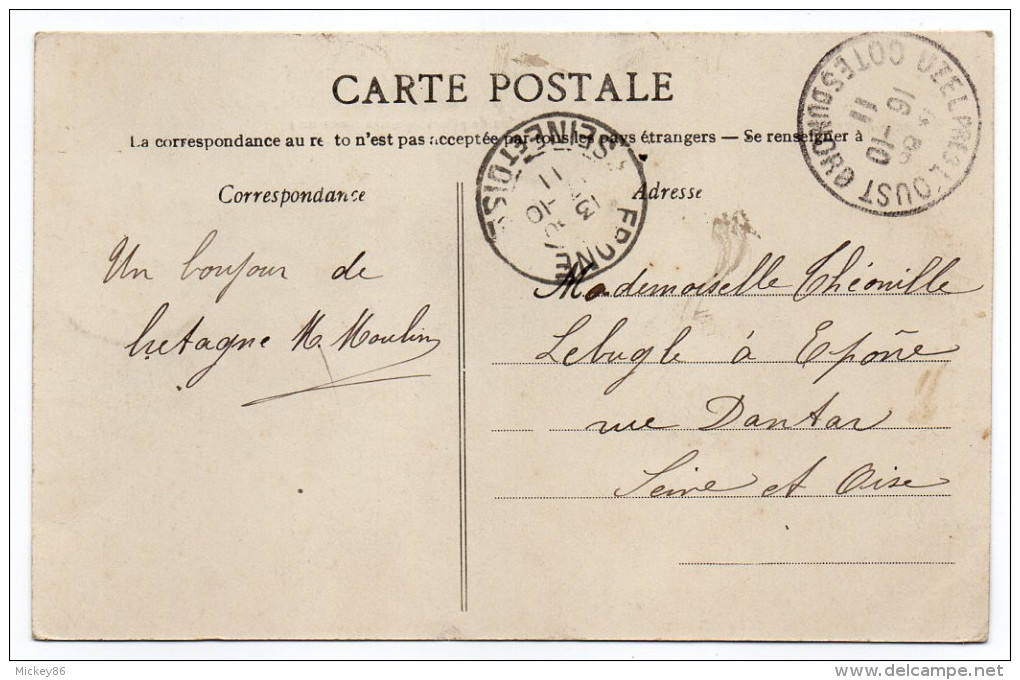 CARTE POSTALE
La correspondance au recto n'est pas acceptée par tous les pays étrangers — Se renseigner à
Correspondance
Adresse
Un bonjour de
bretagne M. Moulin
Mademoiselle Théonille
Lebugle à Epône
rue Dantan
Seine et Oise
UZEL PRÈS L'OUST COTES DU NORD
16-10
11
SEINE ET OISE
-10
11
Mickey86
www.delcampe.net